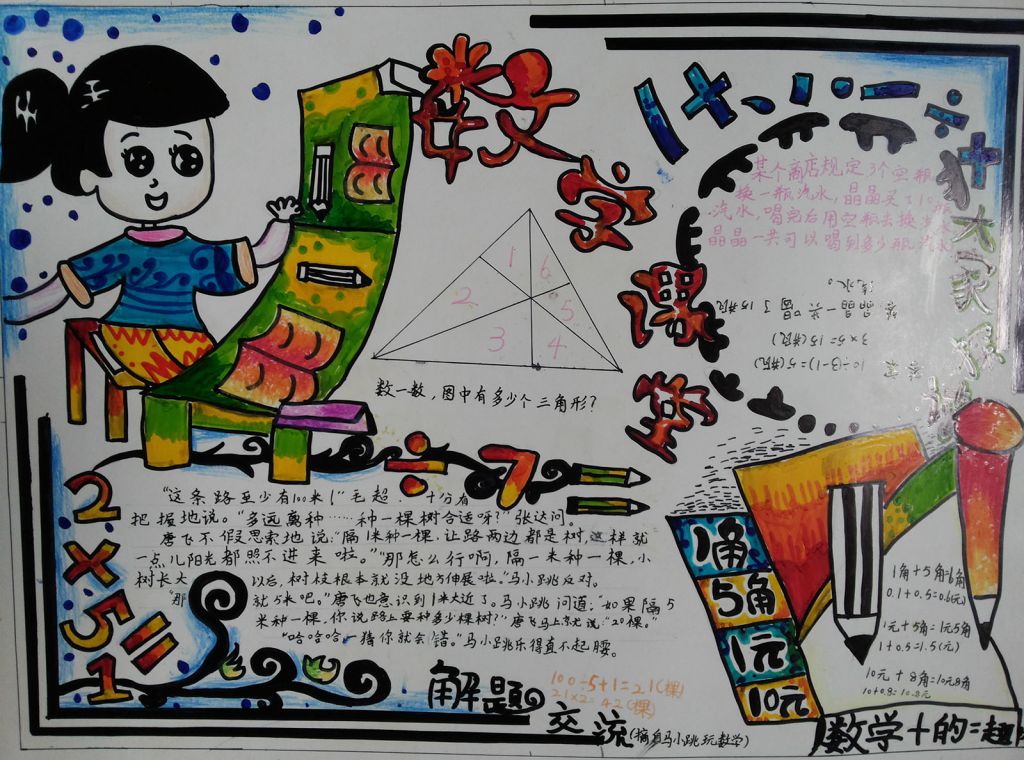 数学课堂
1+1-÷+
大家
某个商店规定3个空瓶
换一瓶汽水,晶晶买了10瓶
汽水,喝完后用空瓶去换
晶晶一共可以喝到多少瓶汽水
10÷(3-1)=5(瓶)
3×5=15(瓶)
答:晶晶一共喝了15瓶
汽水。
1
6
2
5
3
4
数一数,图中有多少个三角形?
÷
7
2×5=1
"这条路至少有100米!"毛超十分有
把握地说。"多远奠种……种一棵树合适呀?"张达问。
唐飞不假思索地说:"隔1米种一棵,让路两边都是树,这样就
一点儿阳光都照不进来啦。""那怎么行啊,隔一米种一棵,小
树长大以后,树枝根本就没地方伸展啦。"马小跳反对。
"那就5米吧。"唐飞也意识到1米太近了。马小跳问道:"如果隔5
米种一棵,你说路上要种多少棵树?"唐飞马上就说:"20棵。"
"哈哈哈,猜你就会错。"马小跳乐得直不起腰。
解题
100÷5+1=21(棵)
21×2=42(棵)
交流
(摘自马小跳玩数学)
1角
5角
1元
10元
1角+5角=6角
0.1+0.5=0.6(元)
1元+5角=1元5角
1+0.5=1.5(元)
10元+8角=10元8角
10+0.8=10.8元
数学+的=趣